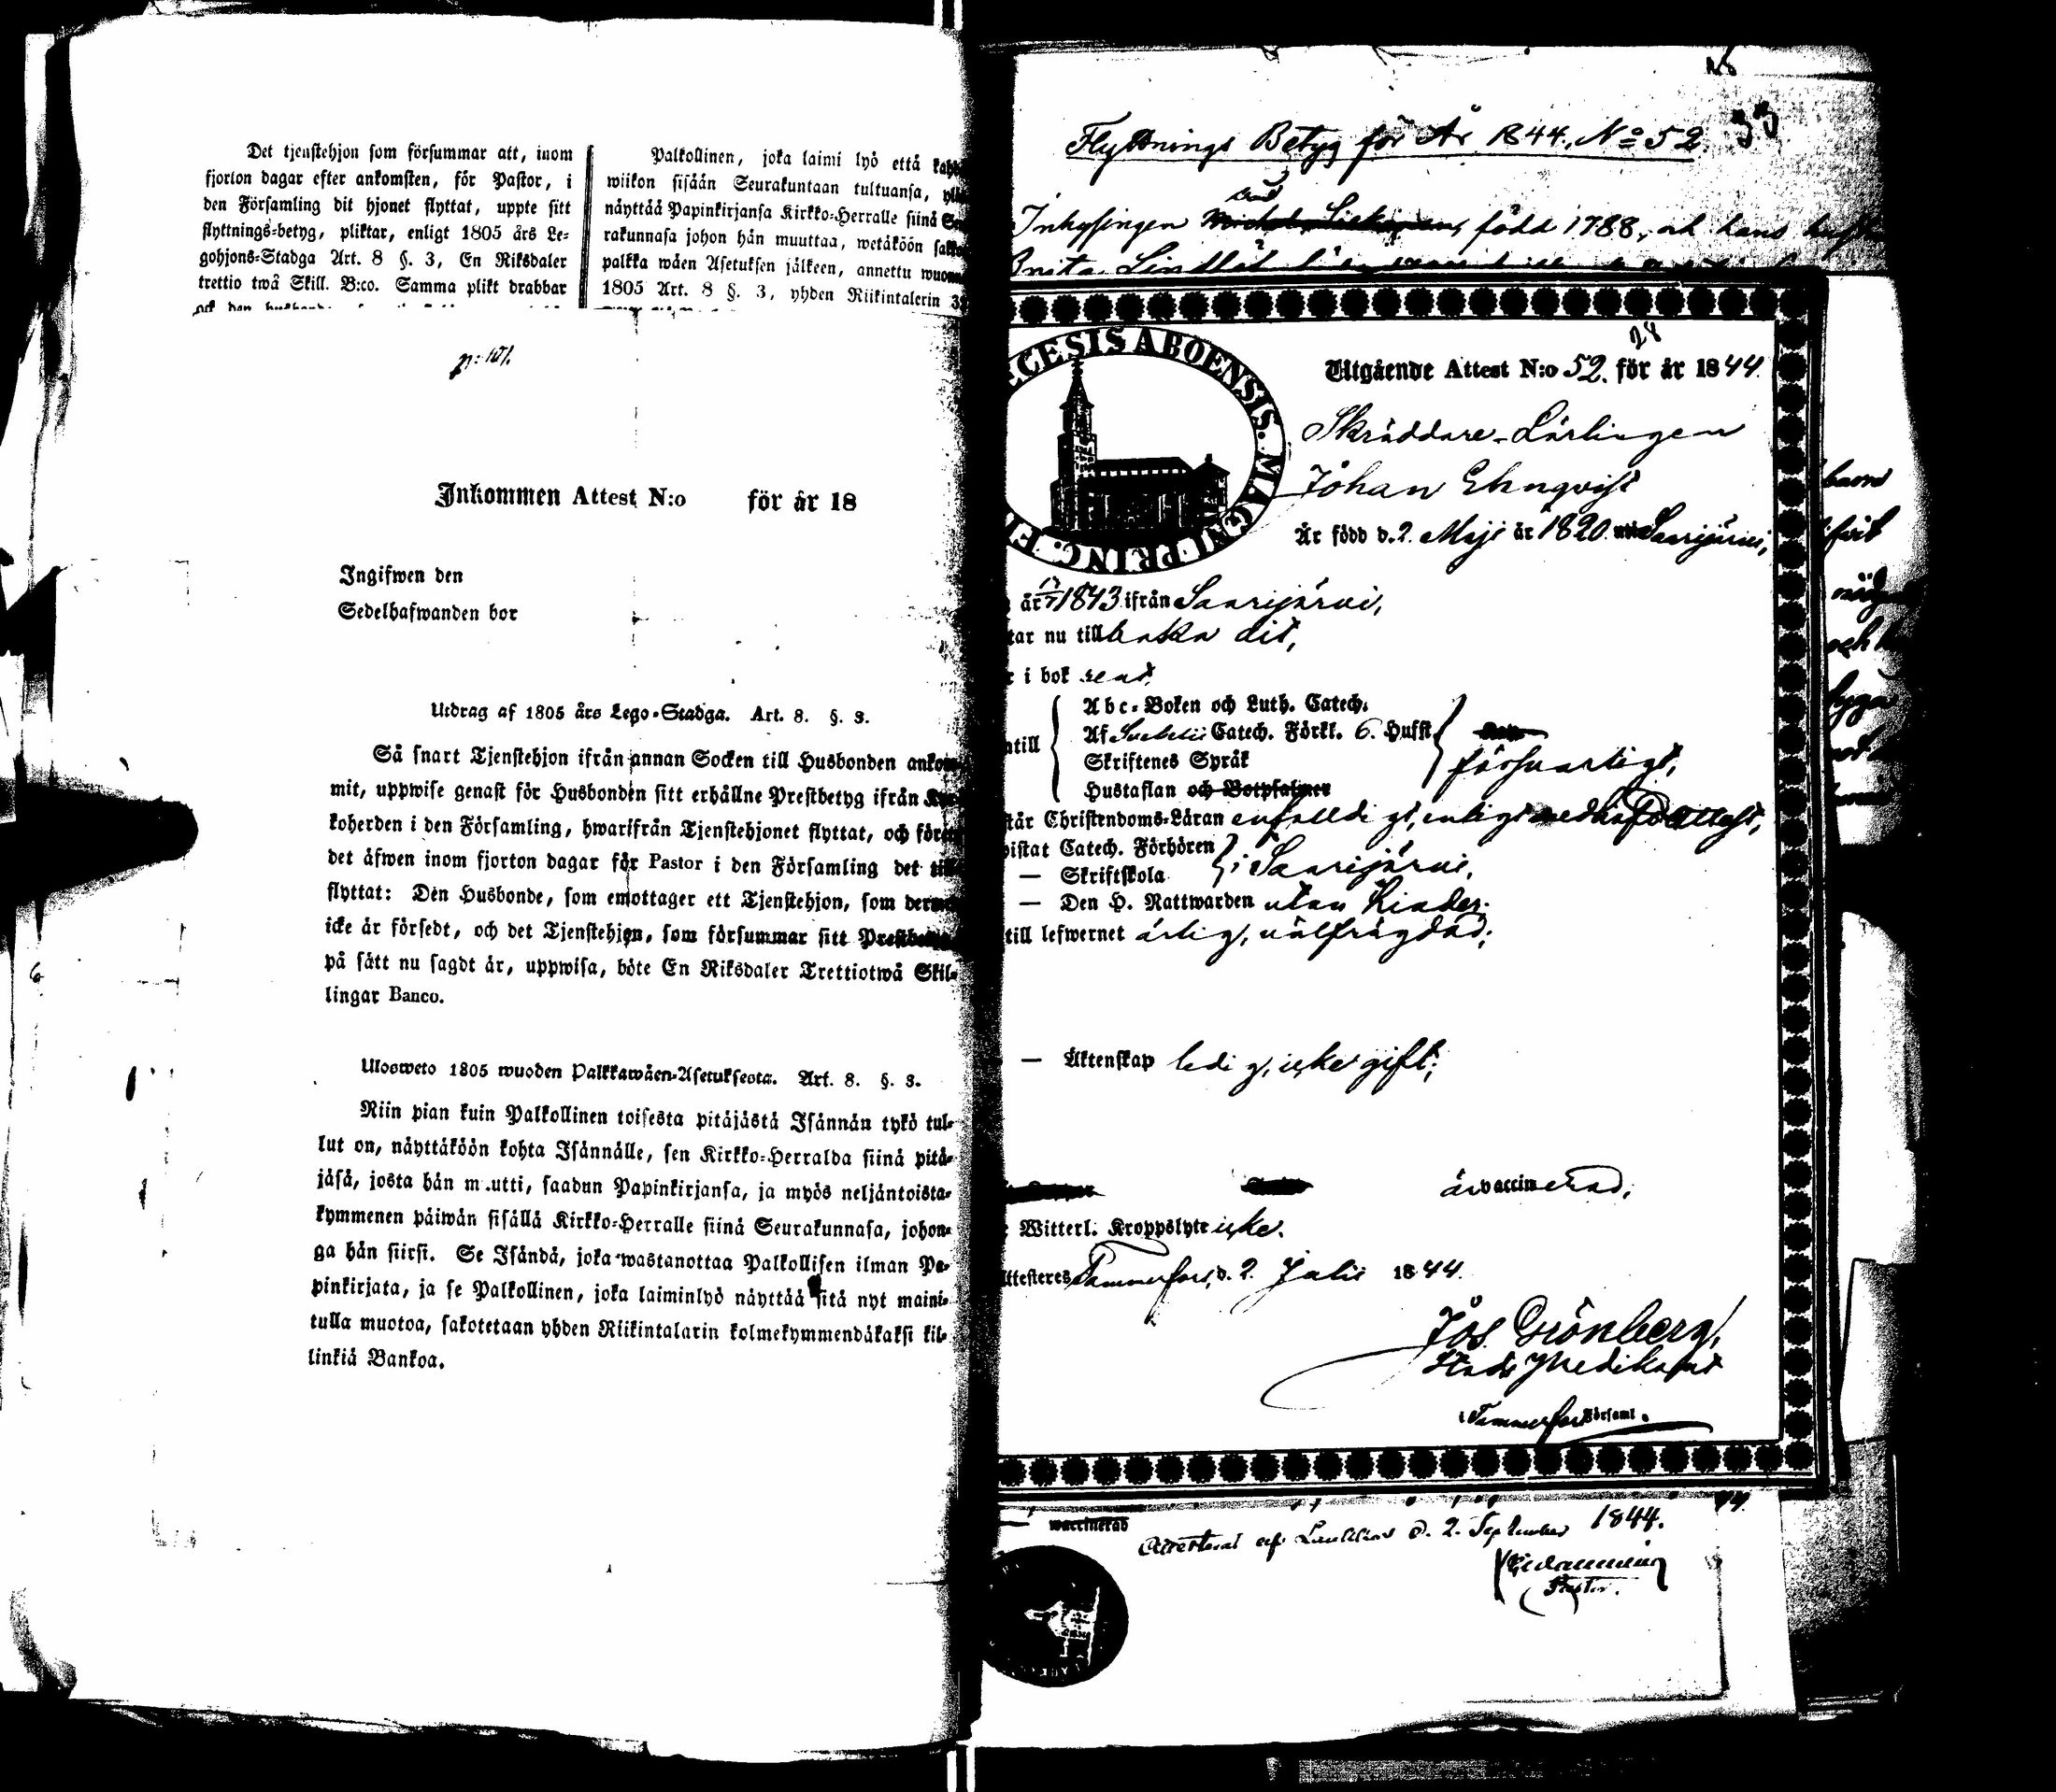 Det tjenstehjon som försummar att, inom
fjorton dagar efter ankomsten, för Pastor, i
den Församling dit hjonet flyttat, uppte sitt
flyttnings-betyg, pliktar, enligt 1805 års Le-
gohjons-Stadga Art. 8 §. 3, En Riksdaler
trettio twå Skill. B:co. Samma plikt drabbar
Palkollinen, joka laimi lyö että
wiikon sisään Seurakuntaan tultuansa,
näyttää Papinkirjansa Kirkko-Herralle siinä
rakunnasa johon hän muuttaa, wetäköön
palkka wäen Asetuksen jälkeen, annettu
1805 Art. 8 §. 3, yhden Riikintalerin
p: 101.
Inkommen Attest N:o för år 18
Ingifwen den
Sedelhafwanden bor
Utdrag af 1805 års Lego-Stadga. Art. 8. §. 3.
Så snart Tjenstehjon ifrån annan Socken till Husbonden ankom-
mit, uppwise genast för Husbonden sitt erhållne Prestbetyg ifrån Kyr-
koherden i den Församling, hwarifrån Tjenstehjonet flyttat, och
det äfwen inom fjorton dagar för Pastor i den Församling det
flyttat: Den Husbonde, som emottager ett Tjenstehjon, som
icke är försedt, och det Tjenstehjon, som försummar sitt
på sätt nu sagdt är, uppwisa, böte En Riksdaler Trettiotwå Skil-
lingar Banco.
Ulosweto 1805 wuoden Palkkawäen-Asetuksesta. Art. 8. §. 3.
Niin pian kuin Palkollinen toisesta pitäjästä Isännän tykö tul-
lut on, näyttäköön kohta Isännälle, sen Kirkko-Herralda siinä pitä-
jäsä, josta hän m.utti, saadun Papinkirjansa, ja myös neljäntoista-
kymmenen päiwän sisällä Kirkko-Herralle siinä Seurakunnasa, johon-
ga hän siirsi. Se Isändä, joka wastanottaa Palkollisen ilman Pa-
pinkirjata, ja se Palkollinen, joka laiminlyö näyttää sitä nyt maini-
tulla muotoa, sakotetaan yhden Riikintalarin kolmekymmendäkaksi kil-
linkiä Bankoa.
Flyttnings Betyg för År 1844. No 52. 33
Inhysingen född 1788, och hans
ECESIS ABOENSIS. MAGNI PRINC.
28
Utgående Attest N:o 52. för år 1844.
Skräddare-Lärlingen
Johan Ehnqvist
Är född d. 2. Maji år 1820. Saarijärvi,
år 1843 ifrån Saarijärvi,
tar nu tillbaka dit,
i bok rent,
Abc-Boken och Luth. Catech.
Af Svebelii Catech. Förkl. 6. Hufst.
Skriftenes Språk
Hustaflan och Botpsalmer
försvarligt,
står Christendoms-Läran enfalldigt, enligt attest,
wistat Catech. Förhören
— Skriftskola i Saarijärvi,
— Den H. Nattwarden utan hinder.
till lefwernet ärlig, välfrägdad;
— Äktenskap ledig, icke gift;
är vaccinerad,
Witterl. Kroppslyte icke.
Attesteres Tammerfors, d. 2. Julii 1844.
Jos. Grönberg,
i Tammerfors Församl.
vaccinerad
d. 2. September 1844.
Pastor.